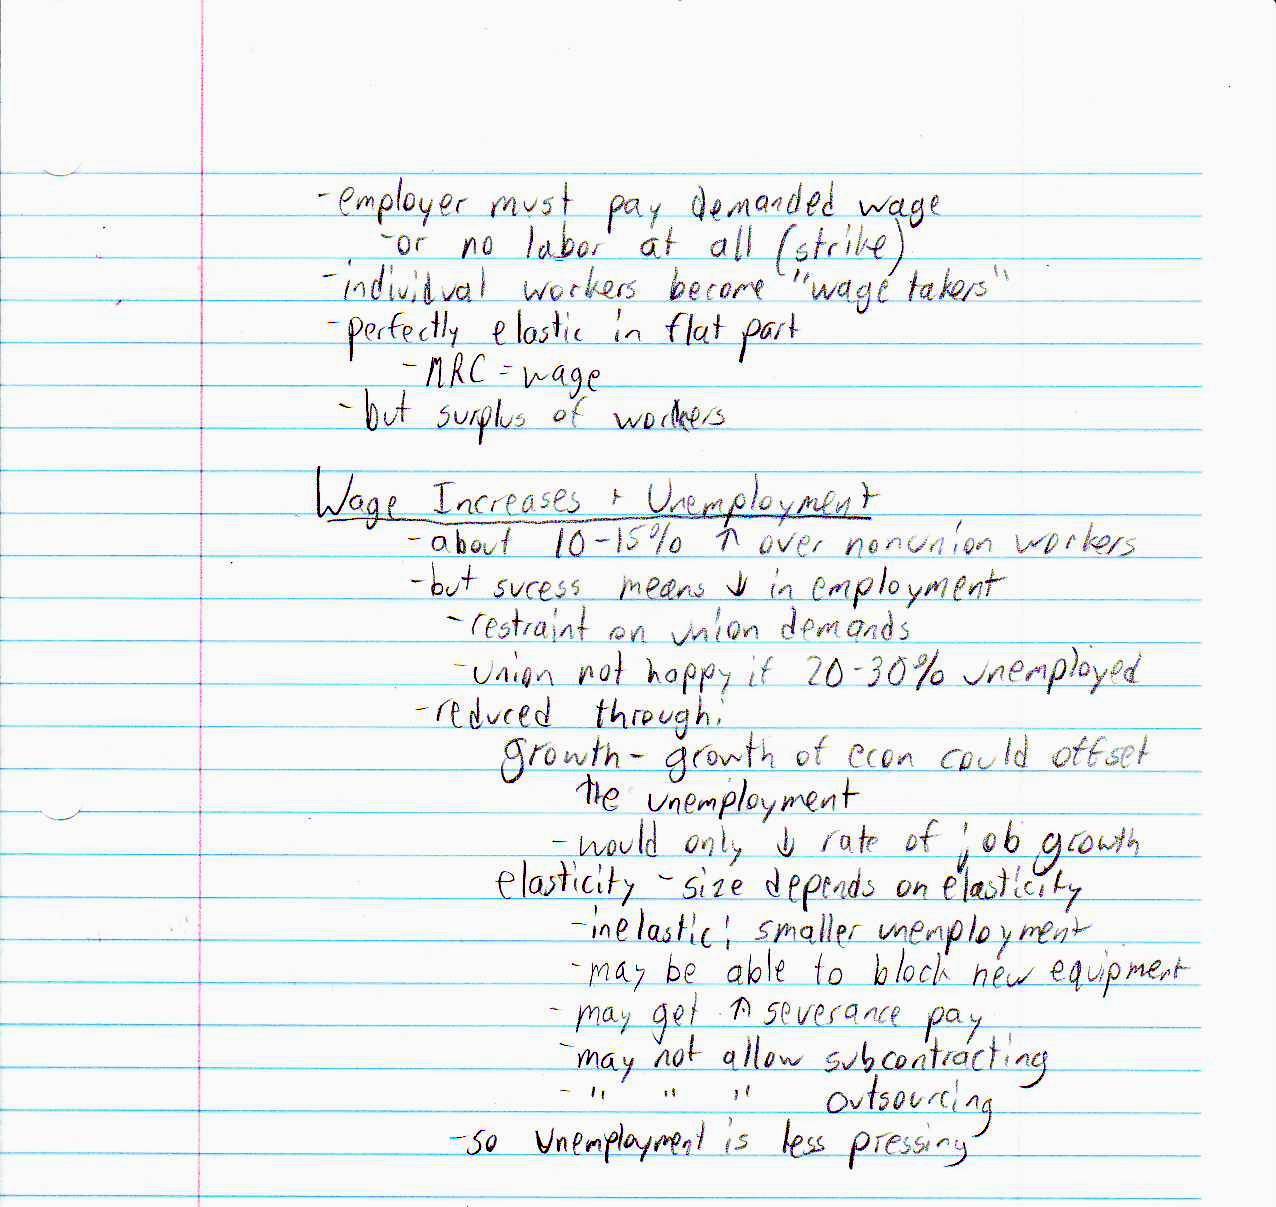 -employer must pay demanded wage
-or no labor at all (strike)
-individual workers become "wage takers"
-perfectly elastic in flat part
-MRC = wage
-but surplus of workers
Wage Increases + Unemployment
-about 10-15% ↑ over nonunion workers
-but sucess means ↓ in employment
-restraint on union demands
-union not happy if 20-30% unemployed
-reduced through:
growth - growth of econ could offset
the unemployment
-would only ↓ rate of job growth
elasticity - size depends on elasticity
-inelastic: smaller unemployment
-may be able to block new equipment
-may get ↑ severance pay
-may not allow subcontracting
- " " " outsourcing
-so unemployment is less pressing